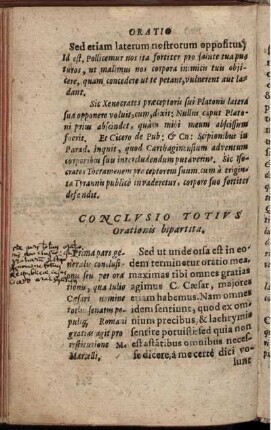 ORATIO
Sed etiam laterum nostrorum oppositus]
Id est, Pollicemur nos ita fortiter pro salute tua pug
turos, ut malimus nos corpora inimicis tuis objj
cere, quam concedere ut te petant, vulnerent aut læ
dant.
Sic Xenocrates præceptoris sui Platonis latera
sua opponere voluit, cum, dixit: Nullus caput Plato
ni prius abscindet, quàm mihi meum abscissum
fuerit. Et Cicero de Pub: & Cn: Scipionibus in
Parad. inquit, quod Carthaginensium adventum
corporibus suis intercludendum putaverint. Sic Iso
crates Theramenem præceptorem suum, cum à triginta
Tyrannis publicè invaderetur, corpore suo fortiter
defendit.
CONCLUSIO TOTIUS
Orationis bipartita.
Prima pars ge
neralis conclusio
nis seu per ora
tionis, qua tulio
Cæsari nomine
totius senatus po
pulisq; Romani
gratias agit pro
restitutione M.
Marcelli.
Sed ut unde orsa est in eo
dem terminetur oratio mea,
maximas tibi omnes gratias
agimus, C. Cæsar, majores
etiam habemus. Nam omnes
idem sentiunt, quod ex om
nium precibus, & lachrymis
sentire potuisti: sed quia non
est astâtibus omnibus neces
se dicere, à me certè dici vo
lunt